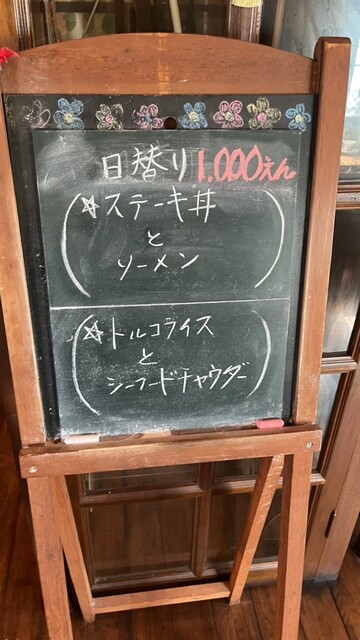 日替り 1.000えん
☆ステーキ丼
と
ソーメン
☆トルコライス
と
シーフードチャウダー